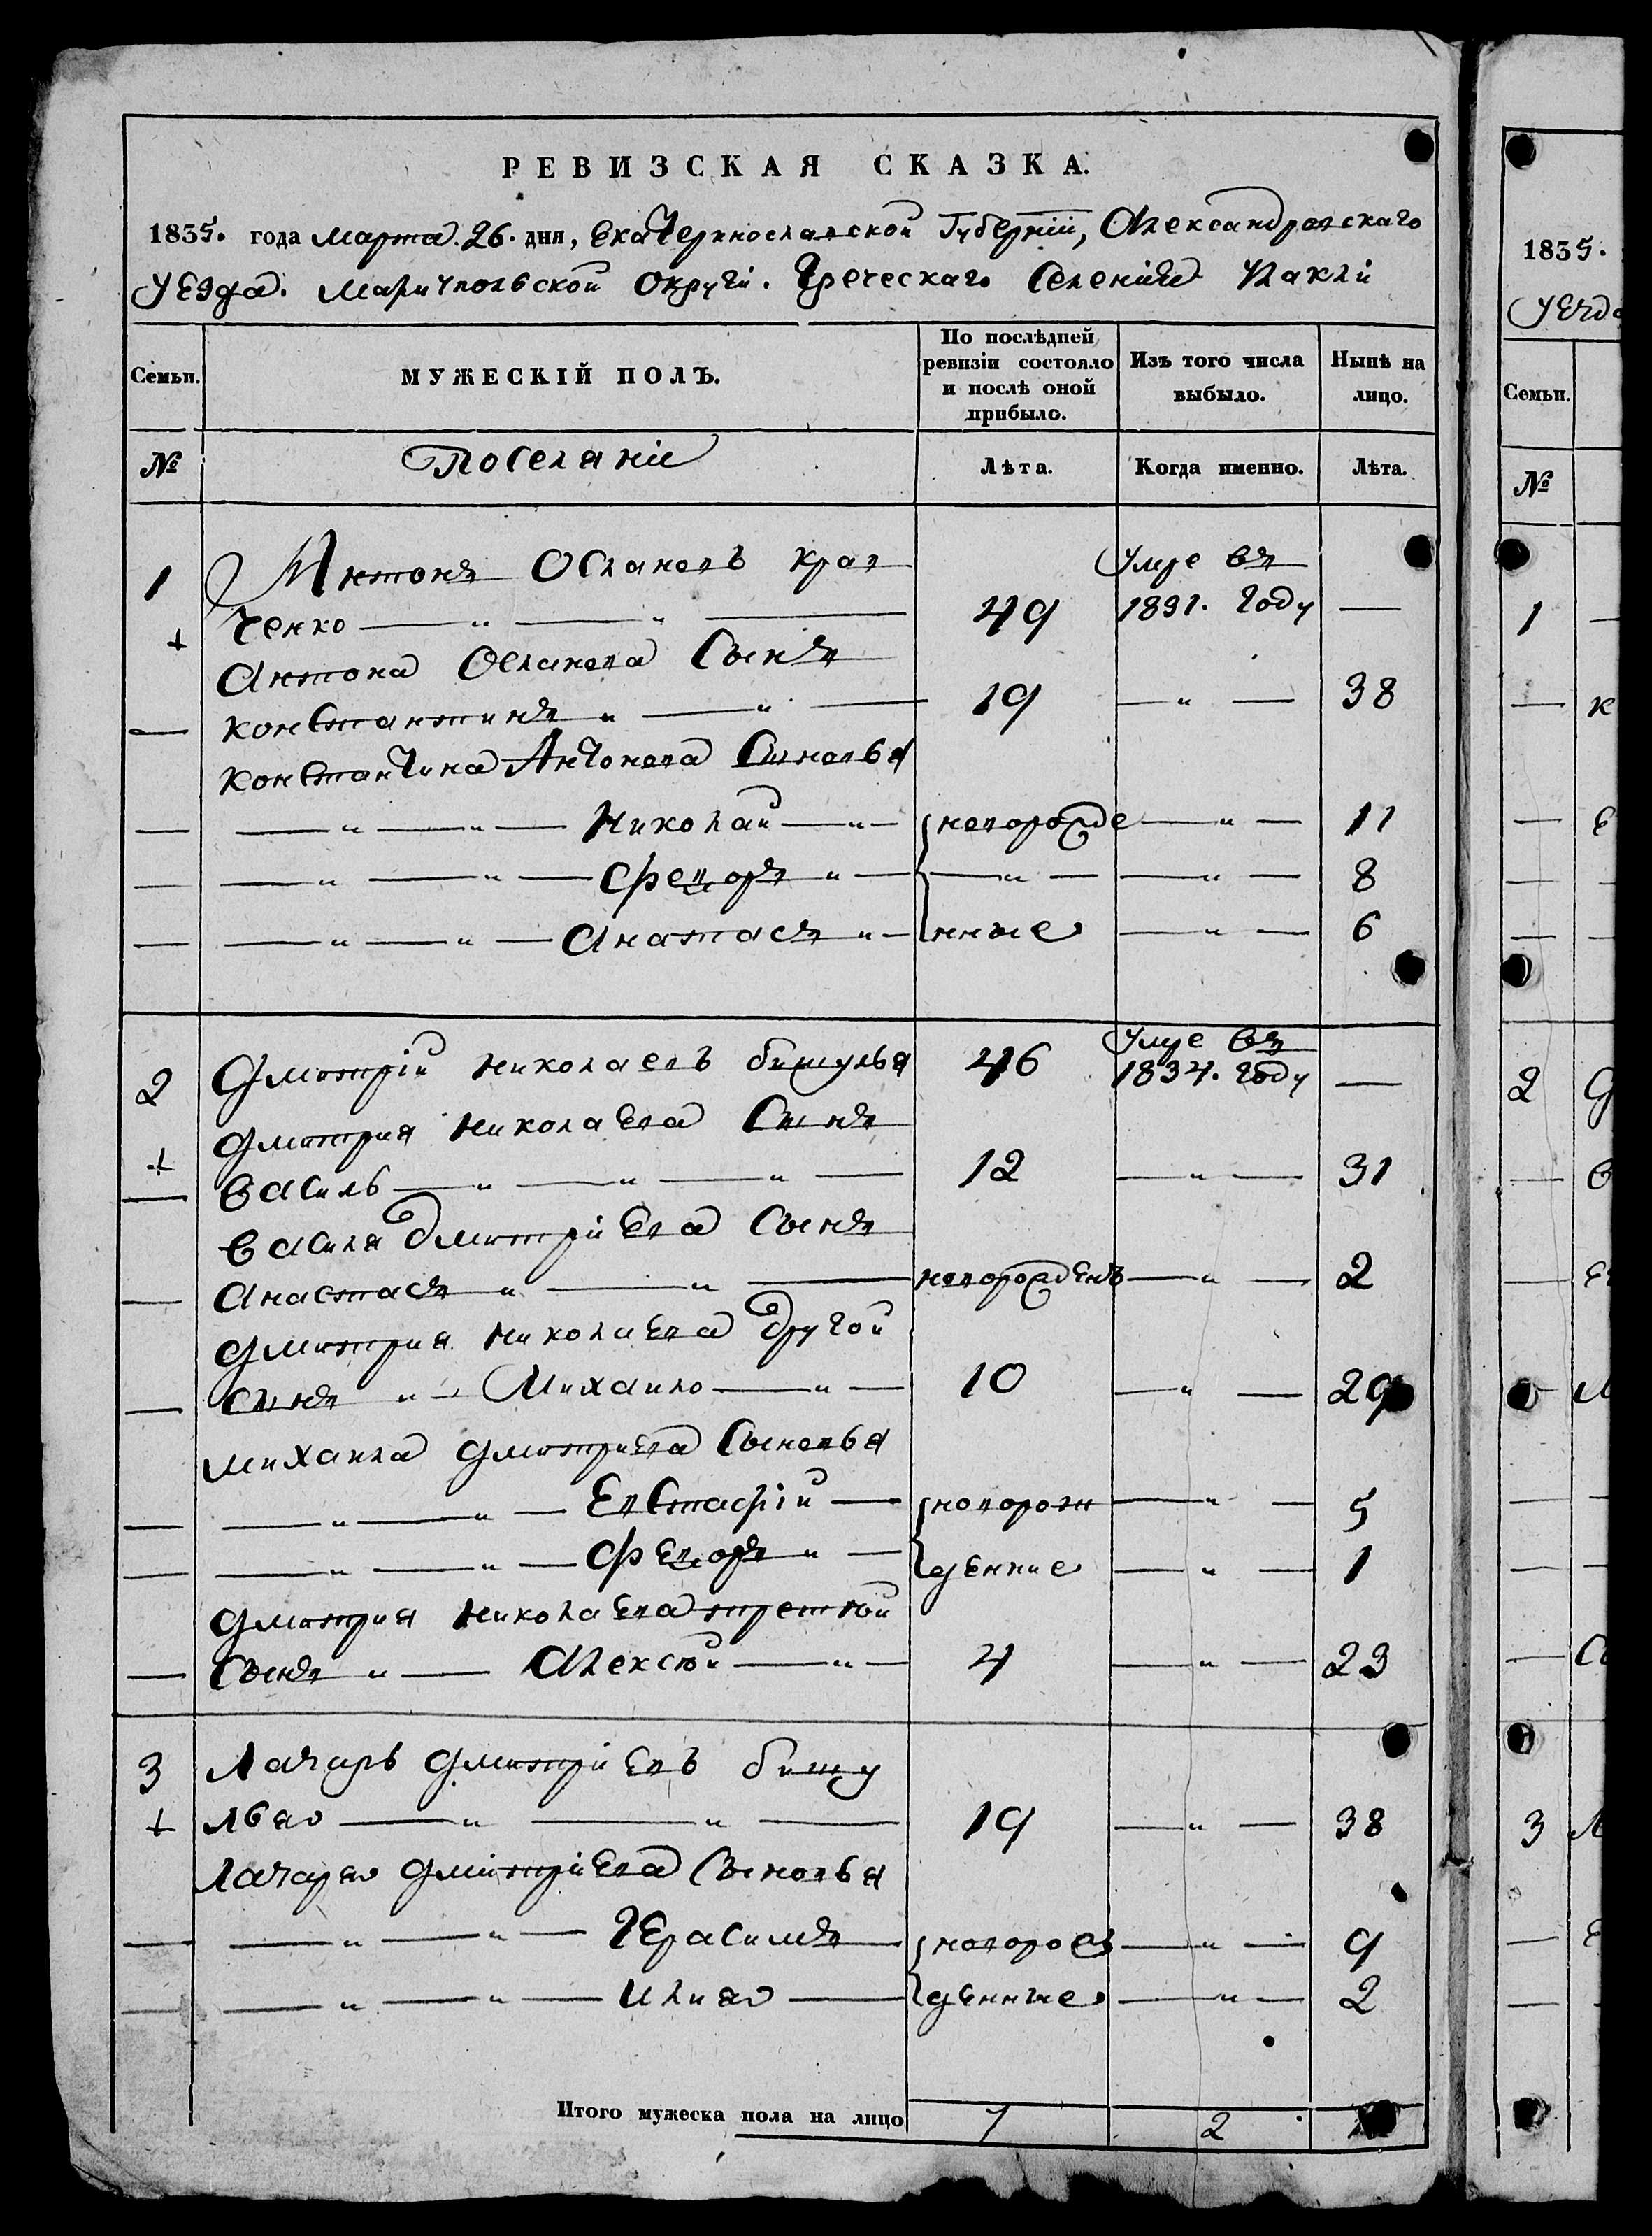 РЕВИЗСКАЯ СКАЗКА.
1835. года марта 26. дня, Екатеринославской Губерніи, Александровскаго
уезда. Мариупольской округи. Греческаго Селения
Семьи. МУЖЕСКІЙ ПОЛЪ. По послѣдней ревизіи состояло и послѣ оной прибыло. Изъ того числа выбыло. Нынѣ на лицо.
№ Поселяніе Лѣта. Когда именно. Лѣта.
1 Антонъ Крав Умре въ
ченко — " — " — 49 1831. году —
Антона сынъ
— Константинъ " — " — 19 — " — 38
Константина Антонова сыновья
— — " — " — Николай — " — новорожде — " — 11
— — " — " — Федоръ " — — " — — " — 8
— — " — " — Анастасъ " — нные — " — 6
2 Дмитрій Николаевъ 46 Умре въ 1834. году —
Дмитрия Николаева сынъ
— Василь — " — " — " — 12 — " — 31
Василя Дмитріева сынъ
— Анастасъ " — " — новорожденъ — " — 2
Дмитрия Николаева другой
— сынъ " — Михаило — " — 10 — " — 29
Михаила Дмитриева сыновья
— — " — " — Евстафій — новорож — " — 5
— — " — " — Федоръ " — денние — " — 1
Дмитрия Николаева третий
— сынъ " — Алексѣй — " — 4 — " — 23
3 Лазарь Дмитріевъ
— " — " — 19 — " — 38
Лазаря Дмитріева сыновья
— — " — " — Герасимъ — новорож — " — 9
— — " — " — Илия — денные — " — 2
Итого мужеска пола на лицо 7 2
1835.
Семьи.
№
1
2
3